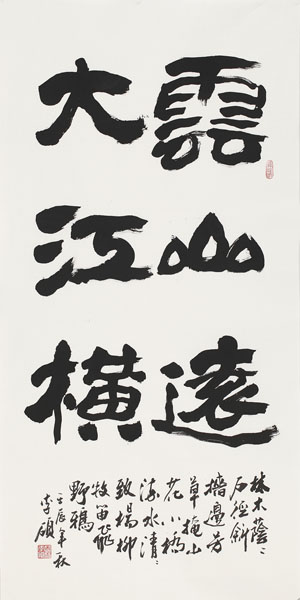 雲山遠
大江橫
林木蔭〻
石徑斜
牆邊芳
草掩山
花小橋
流水清〻
致楊柳
牧笛飛
野鴉
壬辰年秋
李碩